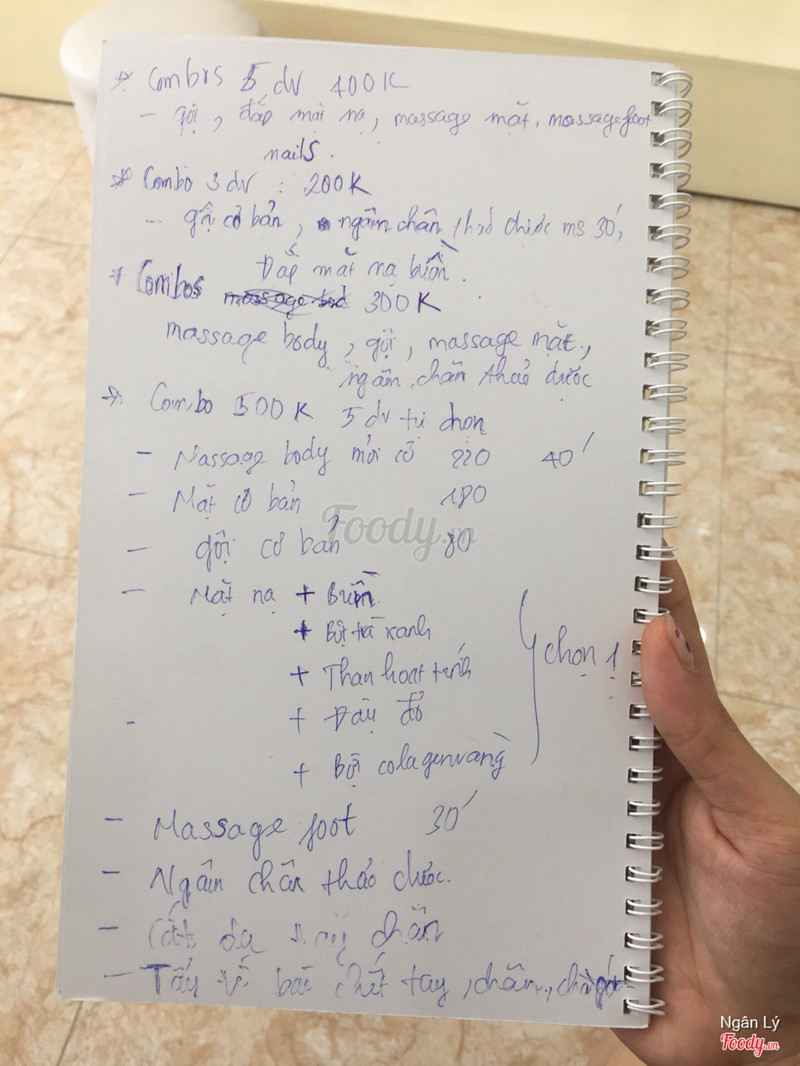 * Combos 5 dv 400K
- gội, đắp mặt nạ, massage mặt, massage foot
nails.
* Combo 3 dv : 200K
- gội cơ bản, ngâm chân thảo dược ms 30',
Đắp mặt nạ biển.
* Combos 300K
massage body, gội, massage mặt,
ngâm chân thảo dược
* Combo 500K 5 dv tự chọn
- Massage body mỏi cổ 220 40'
- Mặt cơ bản 180
- gội cơ bản 80
- Mặt nạ + Biển
+ Bột trà xanh
+ Than hoạt tính
+ Đậu đỏ
+ Bột colagen vàng
} chọn 1
- Massage foot 30'
- Ngâm chân thảo dược.
- Cắt da chân
- Tẩy tay, chân,
Foody.vn
Ngân Lý
Foody.vn